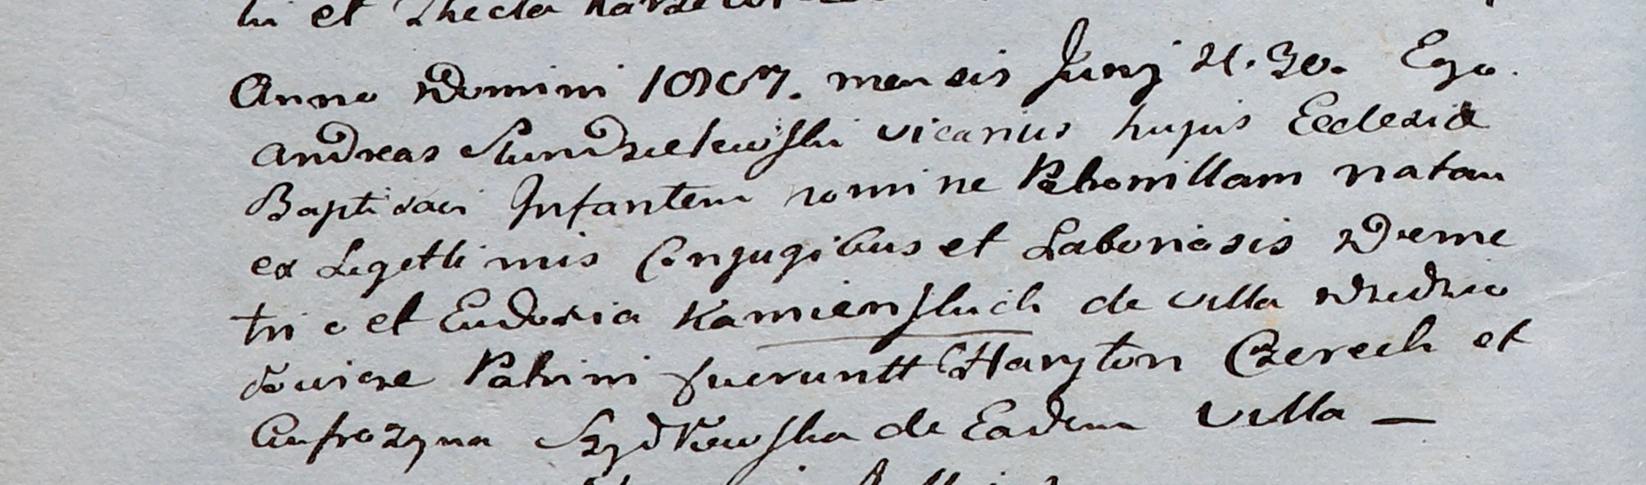 hi et Thecla
Anno Domini 1807. mensis Junij 21. Ego.
Andreas vicarius hujus Ecclesia
Baptisavi Infantem nomine Petronillam natam
ex Legettimis Conjugibus et Laboriosis Deme
trio et Eudoxia Kamienskich de villa
Patrini fueruntt Haryton Czerech et
Aufrozyna Szydłowska de Eadem villa —